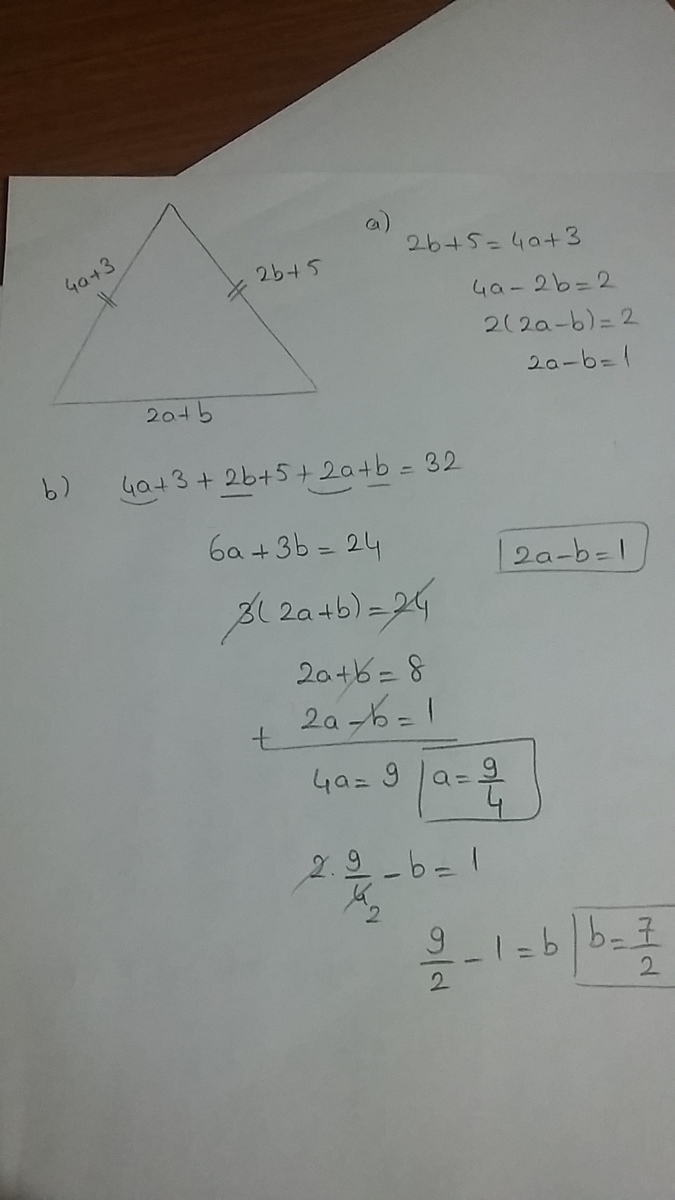 4a+3
2b+5
2a+b
a) 2b+5=4a+3
4a-2b=2
2(2a-b)=2
2a-b=1
b) 4a+3+2b+5+2a+b=32
6a+3b=24
2a-b=1
3(2a+b)=24
2a+b=8
+ 2a-b=1
4a=9 a=9/4
2.9/4 2 -b=1
9/2-1=b b=7/2